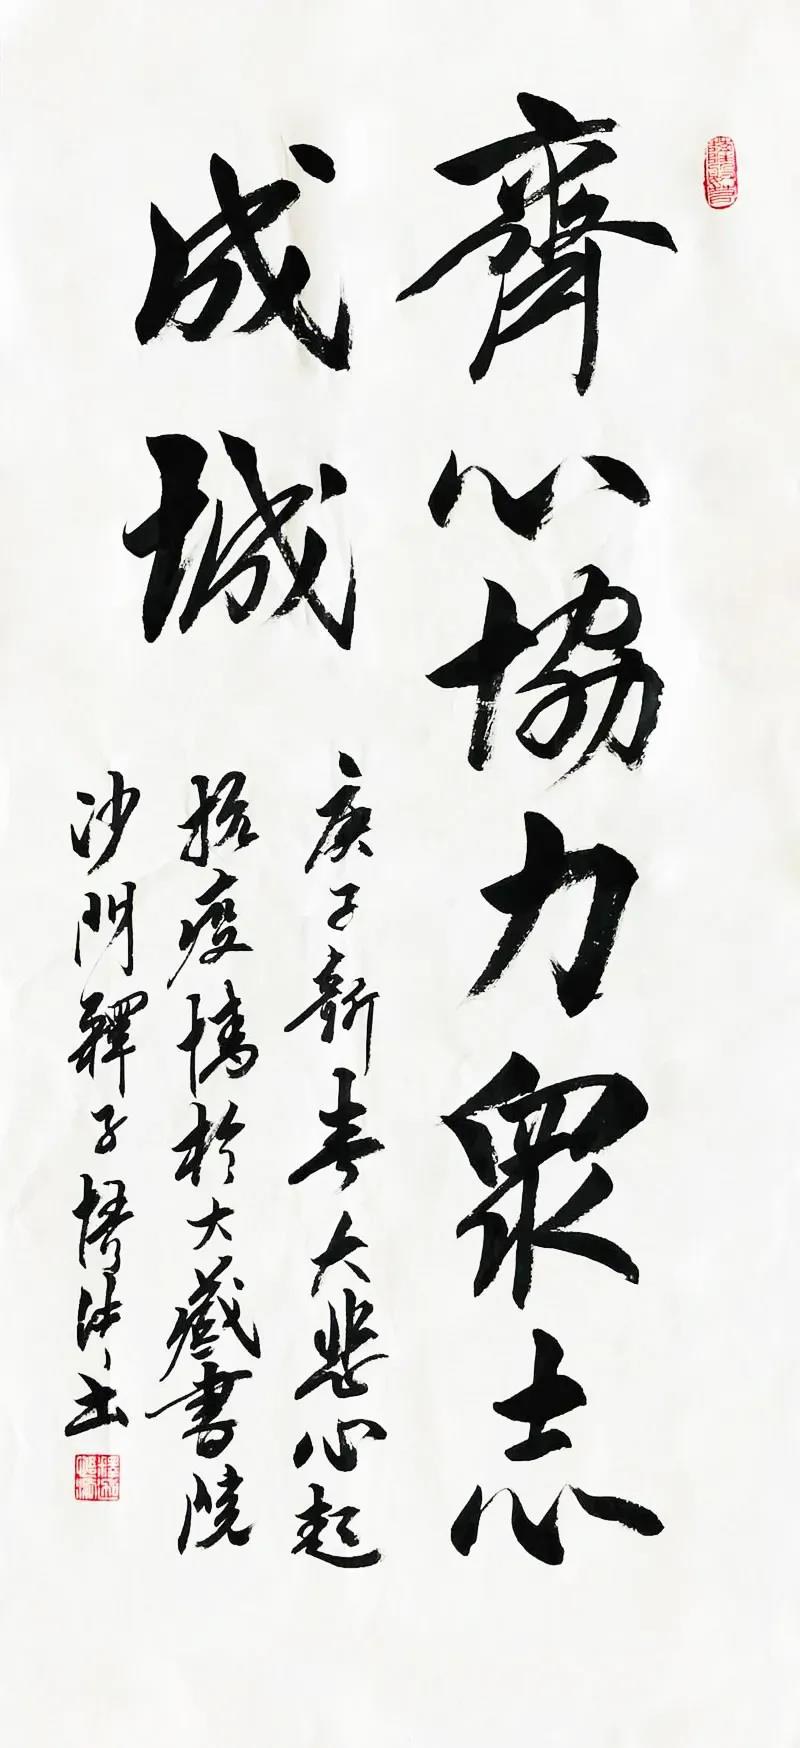 齊心協力衆志
成城
庚子新春大悲心起
抗疫情於大藏書院
沙門釋子悟津書